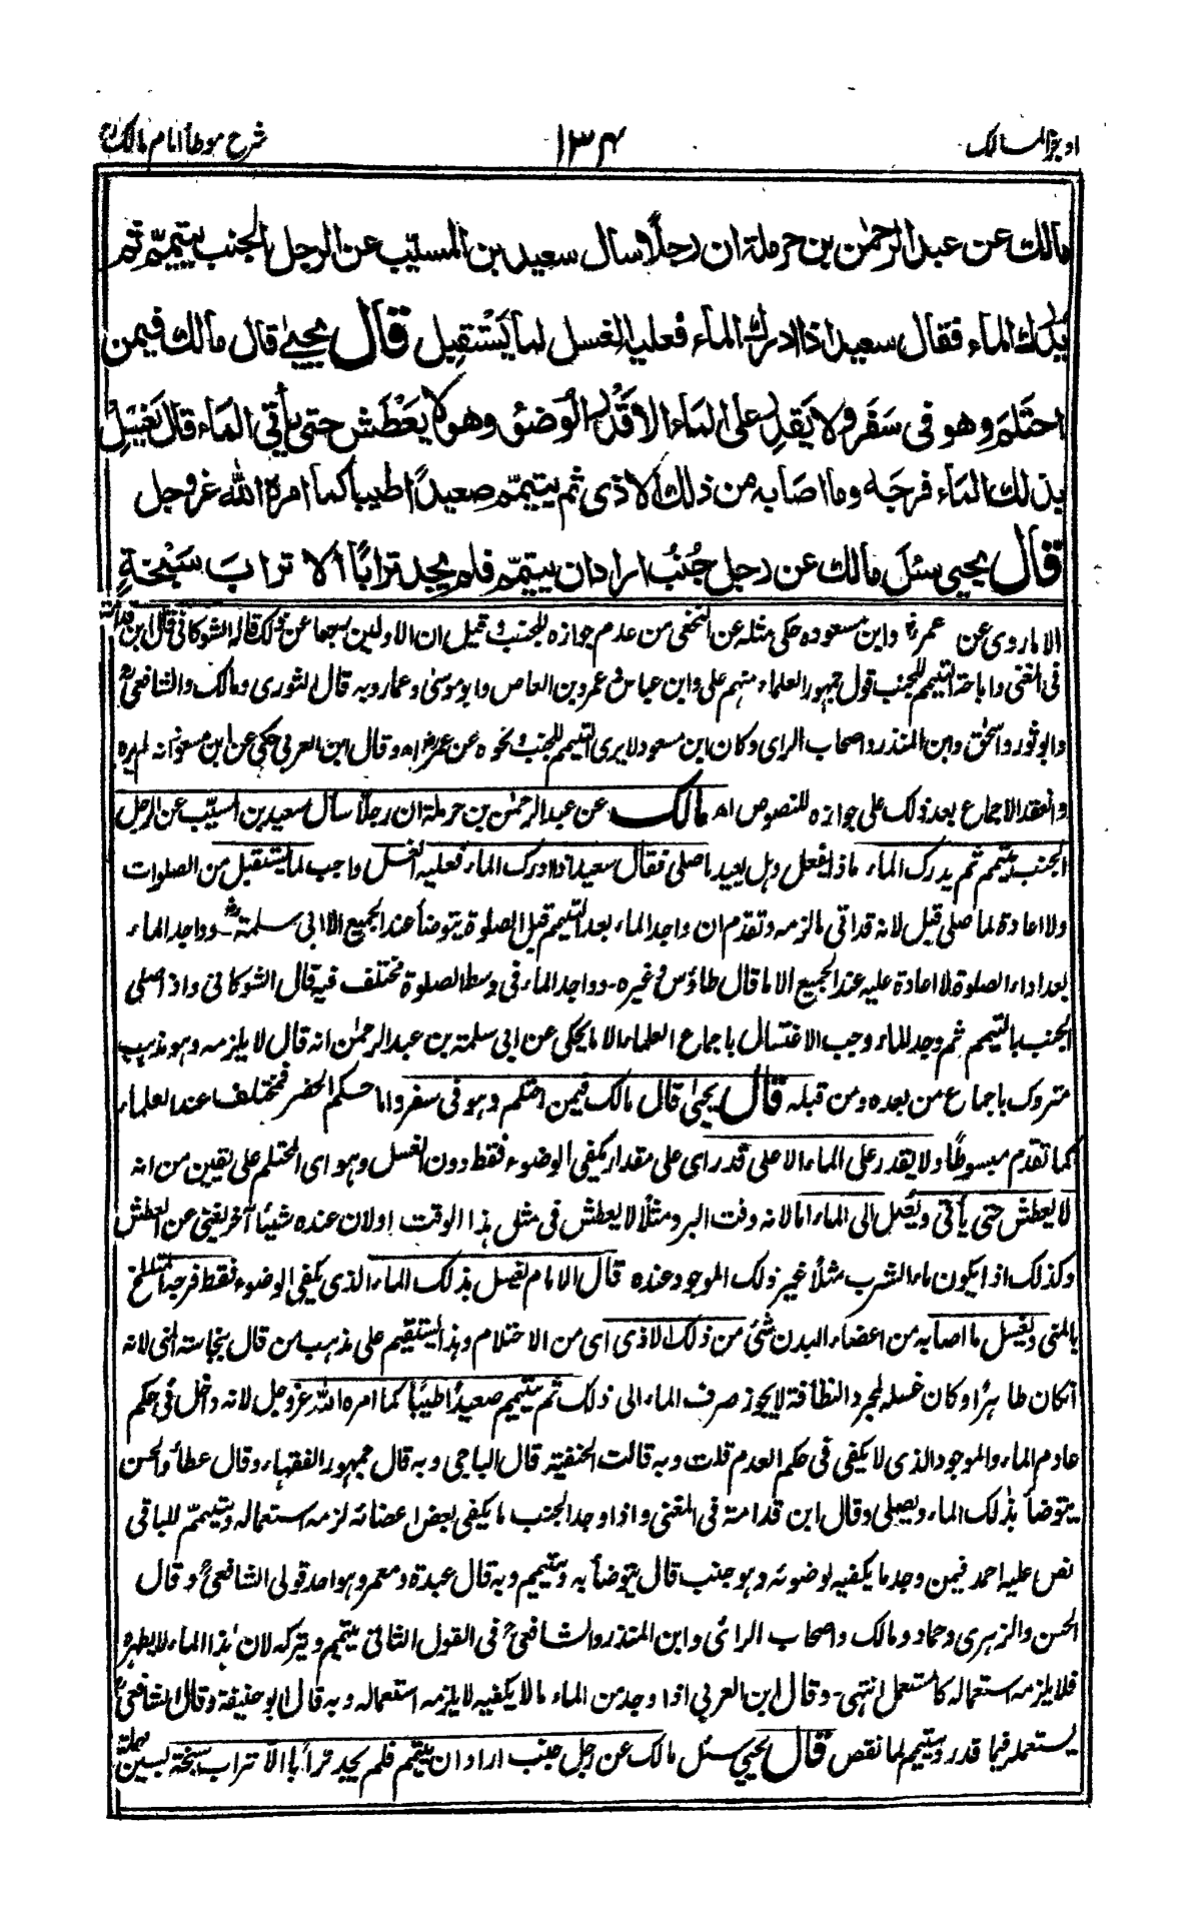 اوجز المسالك
١٣٤
شرح موطأ امام مالك
مالك عن عبد الرحمٰن بن حرملة ان رجلاً سأل سعيد بن المسيّب عن الرجل الجنب يتيمّم ثم
يدرك الماء فقال سعيد اذا ادرك الماء فعليه الغسل لما يَسْتَقبِل قال يحيىٰ قال مالك فيمن
احتلم وهو في سَفَر ولا يَقدِر على الماء الا قَدْر الوُضوء وهو لا يَعْطَش حتى يأتي الماء قال يَغسِل
بذلك الماء فرجَه وما اصابه من ذلك الاذى ثم يتيمّم صعيدًا طيبا كما امره الله عز وجل
قال يحيى سئل مالك عن رجل جُنُب اراد ان يتيمّم فلم يجد ترابًا الا ترابَ سَبْخةٍ
الا ما روى عن عمر وابن مسعود وحكى مثله عن النخعي من عدم جوازه للجنب وقيل ان الاولين رجعا عن ذلك قاله الشوكاني قال ابن قدامة
في المغني واباحة التيمم للجنب قول جمهور العلماء منهم علي وابن عباس وعمرو بن العاص وابو موسىٰ وعمار وبه قال الثوري ومالك والشافعي
وابو ثور واسحٰق وابن المنذر واصحاب الراى وكان ابن مسعود لا يرى التيمم للجنب ونحوه عن عمر اھ وقال ابن العربي حكي عن ابن مسعود انه لم يره
وانعقد الاجماع بعد ذلك على جوازه للنصوص اھ مالك عن عبد الرحمٰن بن حرملة ان رجلاً سأل سعيد بن المسيّب عن الرجل
الجنب يتيمم ثم يدرك الماء ماذا يفعل وهل يعيد ما صلى فقال سعيد اذا ادرك الماء فعليه الغسل واجب لما يستقبل من الصلوات
ولا اعادة لما صلى قبل لانه قد اتى ما لزمه وتقدم ان واجد الماء بعد التيمم قبل الصلوة يتوضأ عند الجميع الا ابي سلمة وواجد الماء
بعد اداء الصلوة لا اعادة عليه عند الجميع الا ما قال طاؤس وغيره - وواجد الماء في وسط الصلوة مختلف فيه قال الشوكاني واذا صلى
الجنب بالتيمم ثم وجد الماء وجب الاغتسال باجماع العلماء الا ما يحكى عن ابي سلمة بن عبد الرحمٰن انه قال لا يلزمه وهو مذهب
متروك باجماع من بعده ومن قبله قال يحيىٰ قال مالك فيمن احتلم وهو في سفر واما حكم الحضر فمختلف عند العلماء
كما تقدم مبسوطًا ولا يقدر على الماء الا على قدر اى على مقدار يكفي الوضوء فقط دون الغسل وهو اى المحتلم على يقين من انه
لا يعطش حتى يأتي ويصل الى الماء اما لانه وقت البرد مثلًا لا يعطش في مثل هذا الوقت اولان عنده شيئا آخر يغني عن العطش
وكذلك اذا يكون ماء الشرب مثلًا غير ذلك الموجود عنده قال الامام يغسل بذلك الماء الذى يكفي الوضوء فقط فرجه المتلطخ
بالمني ويغسل ما اصابه من اعضاء البدن شئ من ذلك الاذى اى من الاحتلام وهذا يستقيم على مذهب من قال بنجاسة المني لانه
ان كان طاهرًا وكان غسله لمجرد النظافة لا يجوز صرف الماء الى ذلك ثم يتيمم صعيدًا طيبًا كما امره الله عز وجل لانه دخل في حكم
عادم الماء والموجود الذى لا يكفي في حكم العدم قلت وبه قالت الحنفية قال الباجي وبه قال جمهور الفقهاء وقال عطاء والحسن
يتوضأ بذٰلك الماء ويصلى وقال ابن قدامة في المغني واذا وجد الجنب ما يكفي بعض اعضائه لزمه استعماله ويتيمّم للباقي
نص عليه احمد فيمن وجد ما يكفيه لوضوئه وهو جنب قال يتوضأ به ويتيمم وبه قال عبدة ومعمر وهو احد قولى الشافعي وقال
الحسن والزهرى وحماد ومالك واصحاب الرائى وابن المنذر والشافعي في القول الثاني يتيمم ويتركه لان هذا الماء لا يطهره
فلا يلزمه استعماله كالمستعمل انتهى - وقال ابن العربي اذا وجد من الماء ما لا يكفيه لا يلزمه استعماله وبه قال ابو حنيفة وقال الشافعي
يستعمله فيما قدر ويتيمم لما نقص قال يحيي سئل مالك عن رجل جنب اراد ان يتيمم فلم يجد تراباً الا تراب سبخة بسين مهملة